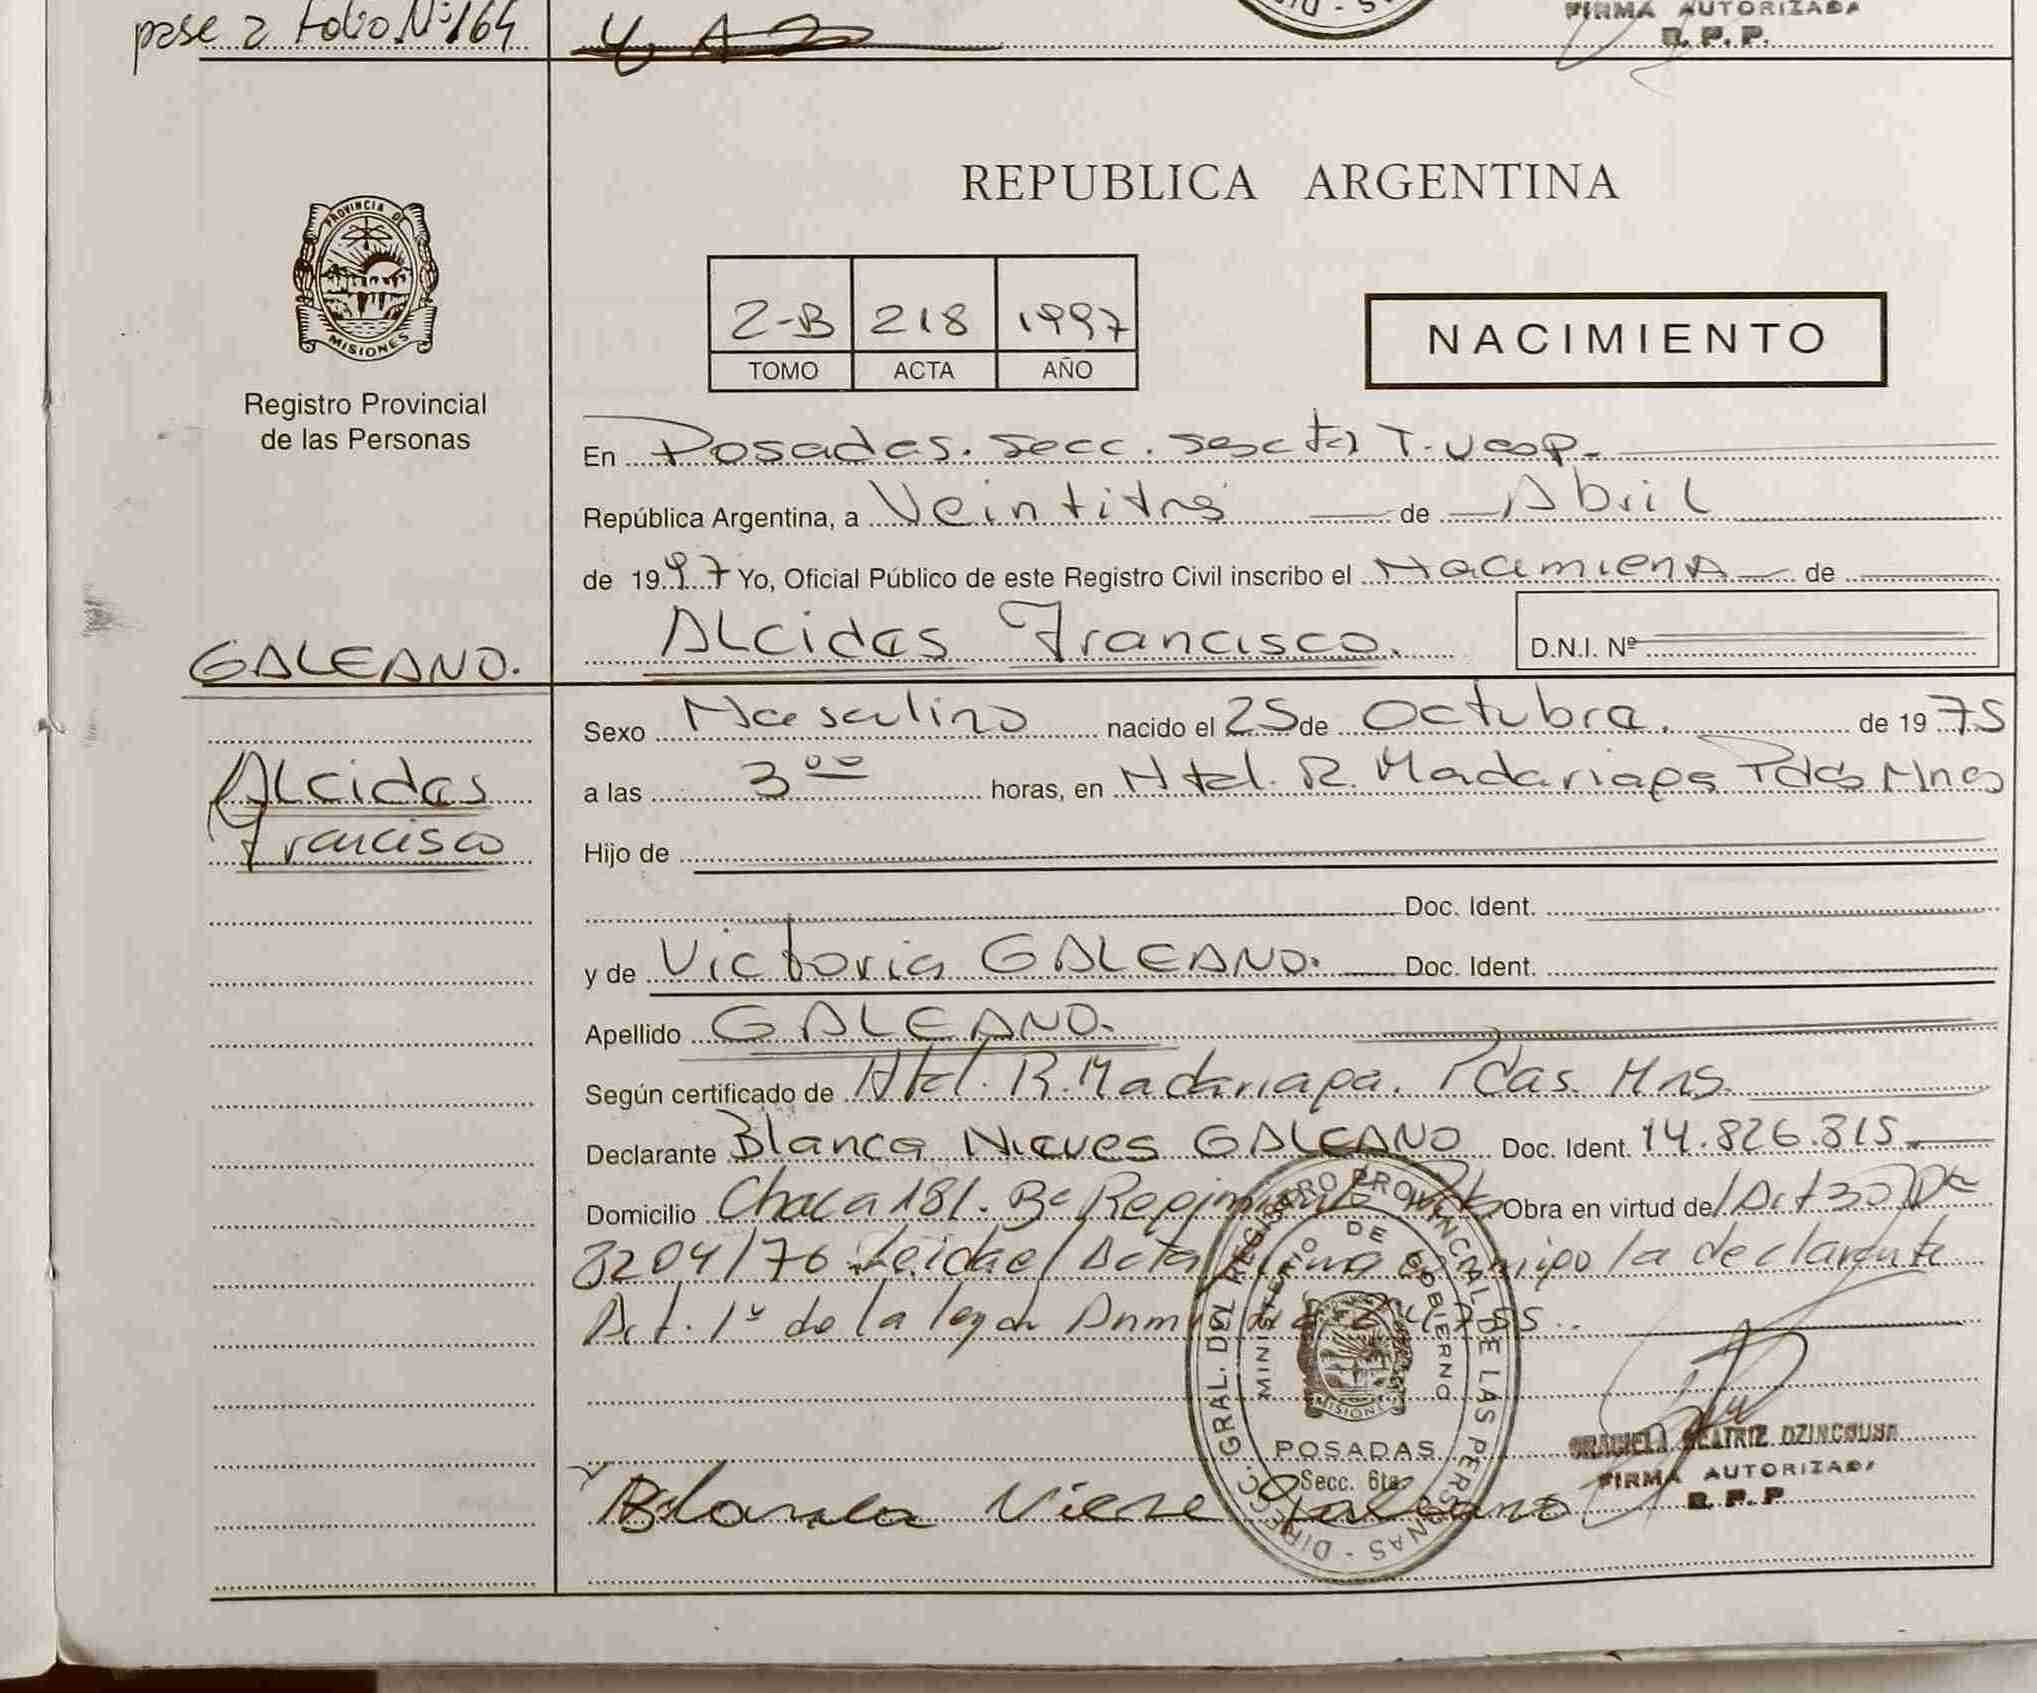 pase a Folio Nº 164
FIRMA AUTORIZADA
R. P. P.
PROVINCIA DE
MISIONES
Registro Provincial
de las Personas
REPUBLICA ARGENTINA
2-B 218 1997
TOMO ACTA AÑO
NACIMIENTO
En Posadas. secc. sexta T. Vesp.
República Argentina, a Veintitrés de Abril
de 1997 Yo, Oficial Público de este Registro Civil inscribo el Nacimiento de
Alcides Francisco.
D.N.I. Nº
GALEANO.
Alcides
Francisco
Sexo Masculino nacido el 25 de Octubre. de 1975
a las 3 00 horas, en Htal. R. Madariaga Pdas Mnes
Hijo de
Doc. Ident.
y de Victoria GALEANO. Doc. Ident.
Apellido GALEANO.
Según certificado de Htal. R. Madariaga. Pdas. Mns.
Declarante Blanca Nieves GALEANO Doc. Ident. 14.826.315.
Domicilio Chaca 181. Bº Regimiento Obra en virtud de l Art 30
3204/76 Leida el Acta firma conmigo la declarante
Art. 1º de la ley de 24755.
DIRECC. GRAL. DEL REGISTRO PROVINCIAL DE LAS PERSONAS
MINISTERIO DE GOBIERNO
MISIONES
POSADAS
Secc. 6ta
GRACIELA BEATRIZ DZINCOUNA
FIRMA AUTORIZADA
R. P. P
Blanca Nieve Galeano